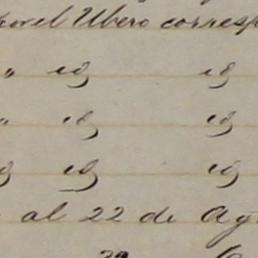 por el Ubero corresp
" id id
" id id
id id id
al 22 de Ag